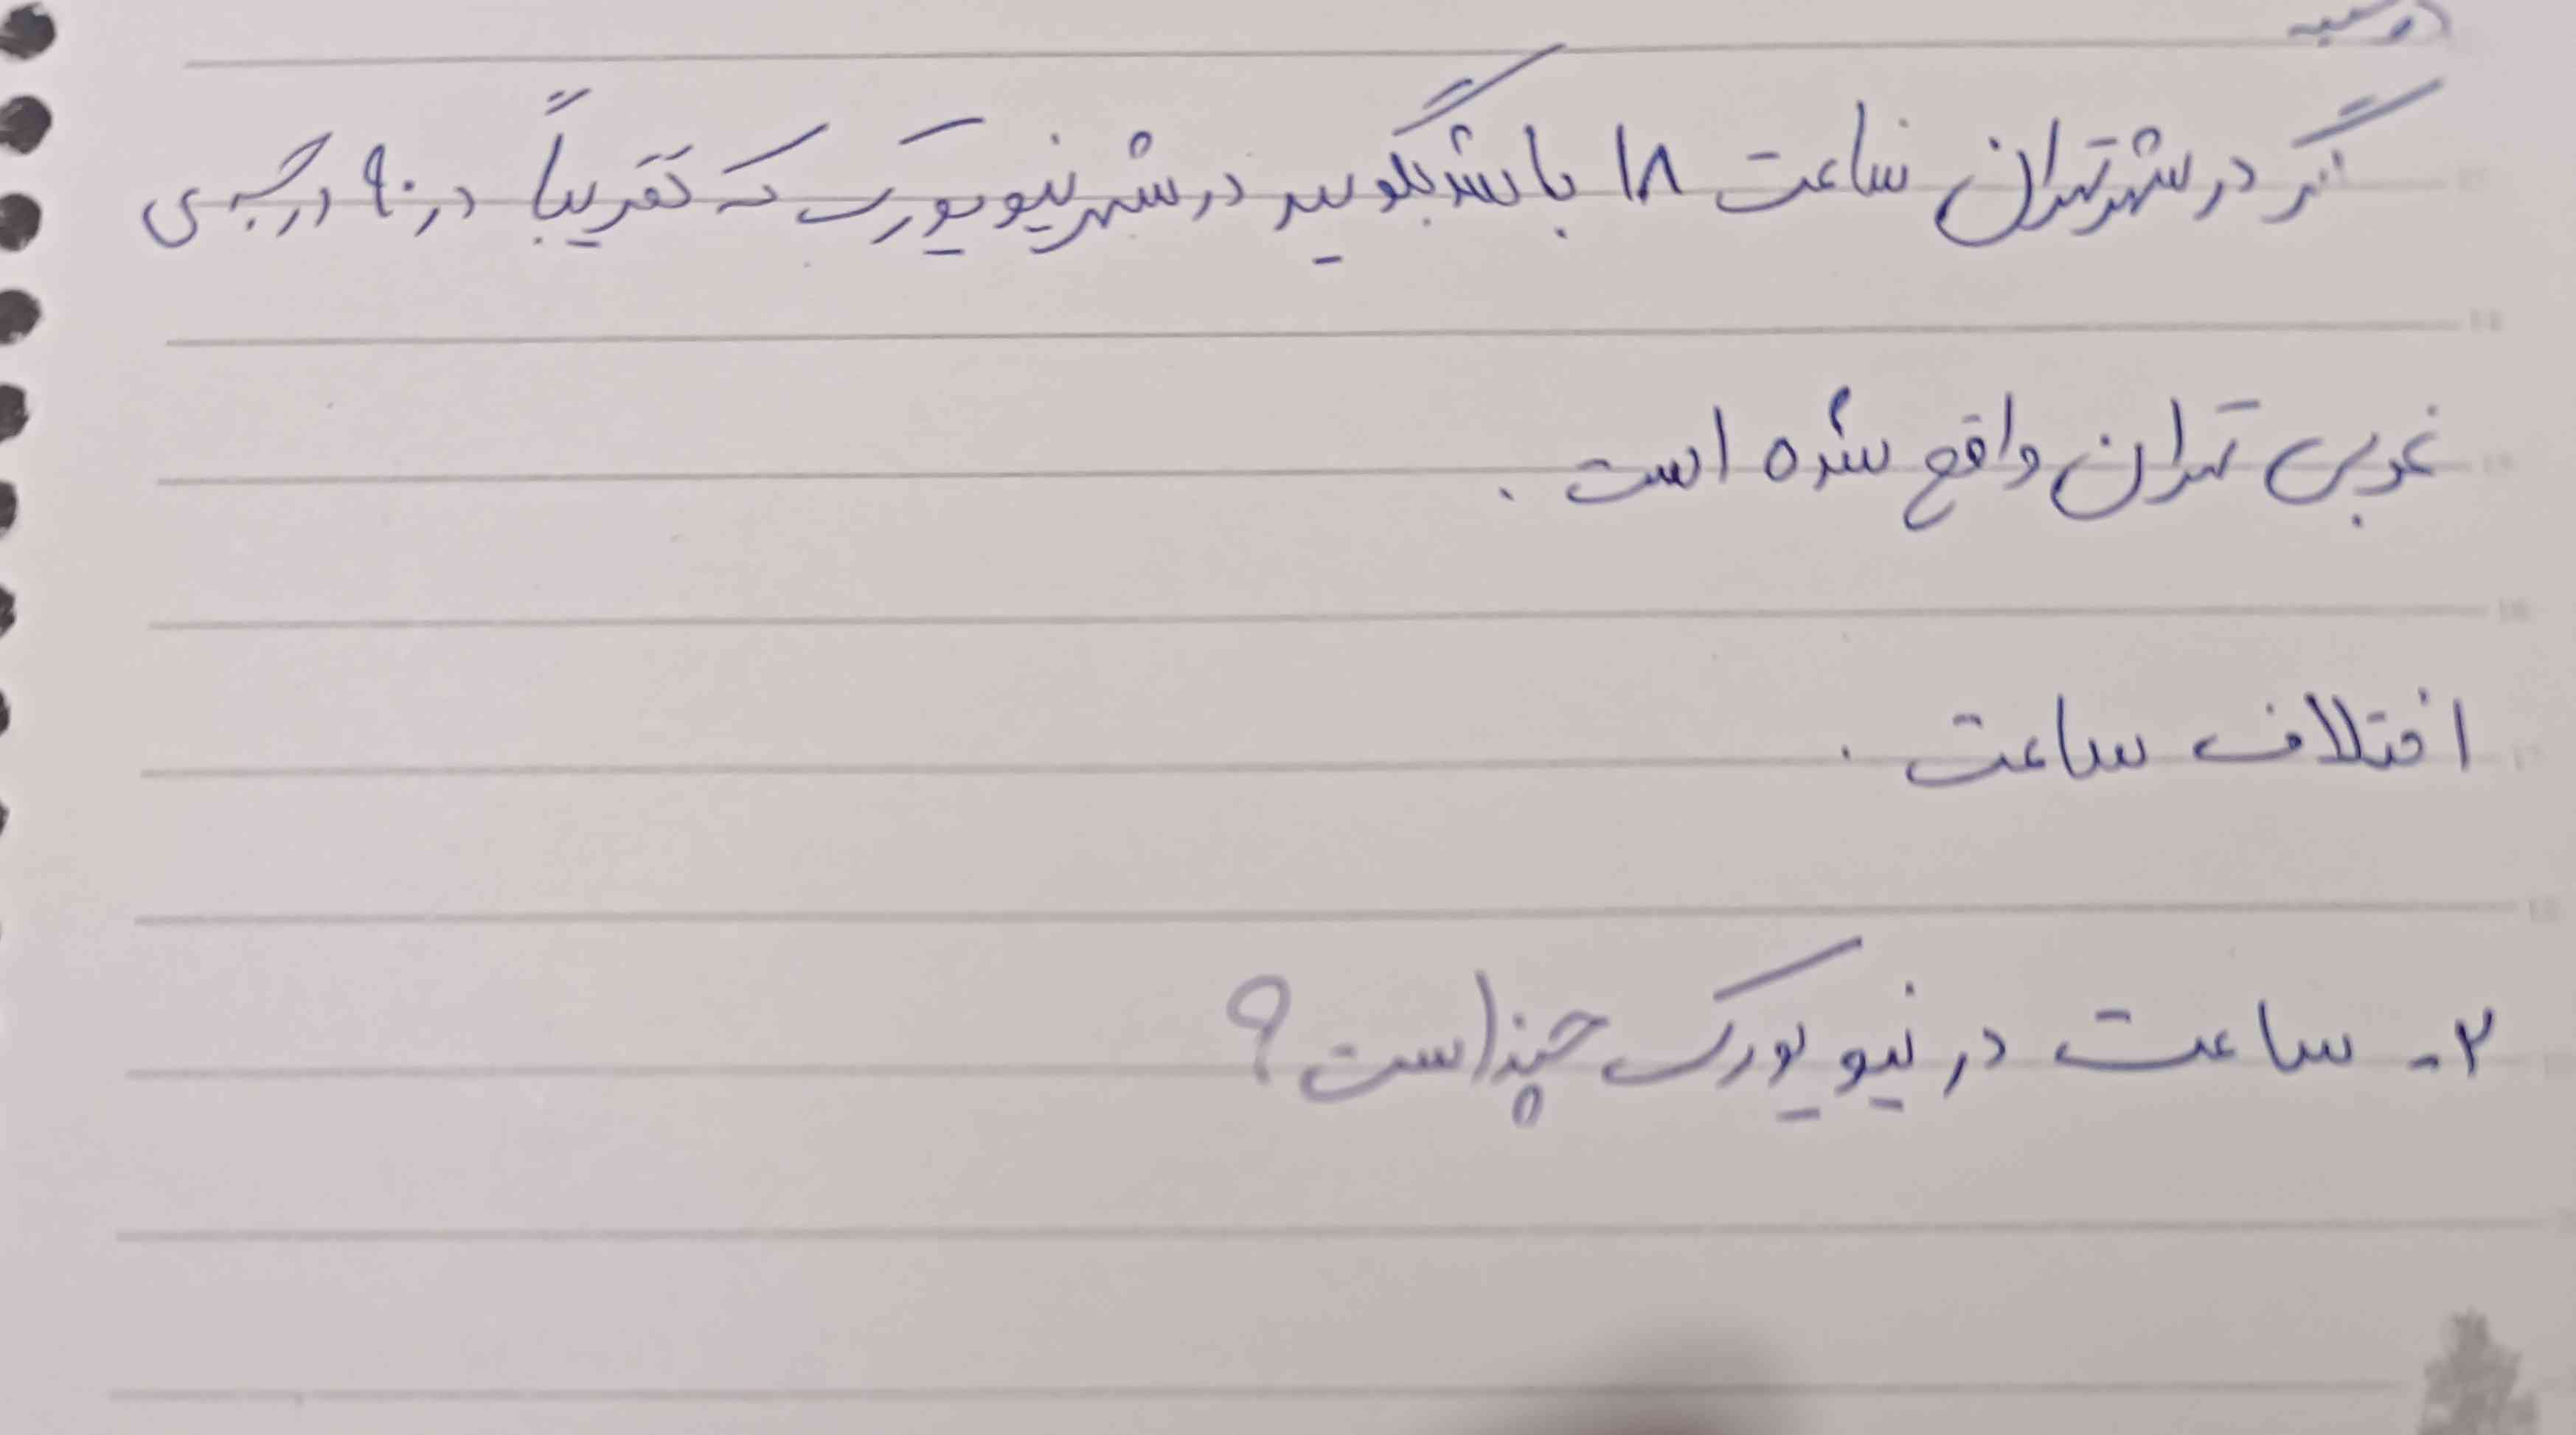 گر در شهر تهران ساعت ۱۸ باشد بگویید در شهر نیویورک که تقریباً در ۹۰ درجه ی
غربی تهران واقع شده است .
اختلاف ساعت .
۲- ساعت در نیویورک چند است ؟